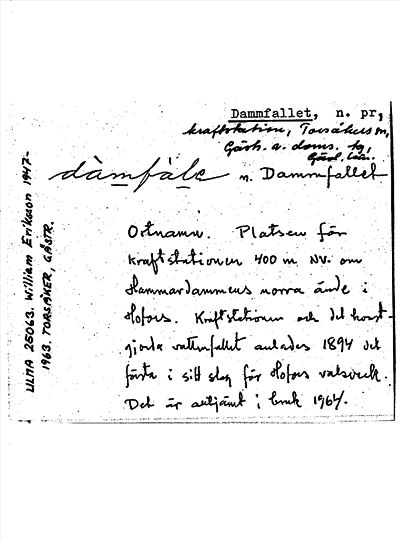 Dammfallet, n. pr,
kraftstation, Torsåkers sn,
Gästr. a. doms. sg,
Gävl. län.
dàmfále n. Dammfallet
Ortnamn. Platsen för
kraftstationen 400 m NV. om
Hammardammens norra ände i
Hofors. Kraftstationen och det konst-
gjorda vattenfallet anlades 1894 det
första i sitt slag för Hofors valsverk.
Det är alltjämt i bruk 1964.
ULMA 25063. William Eriksson 1947-
1963. TORSÅKER, GÄSTR.